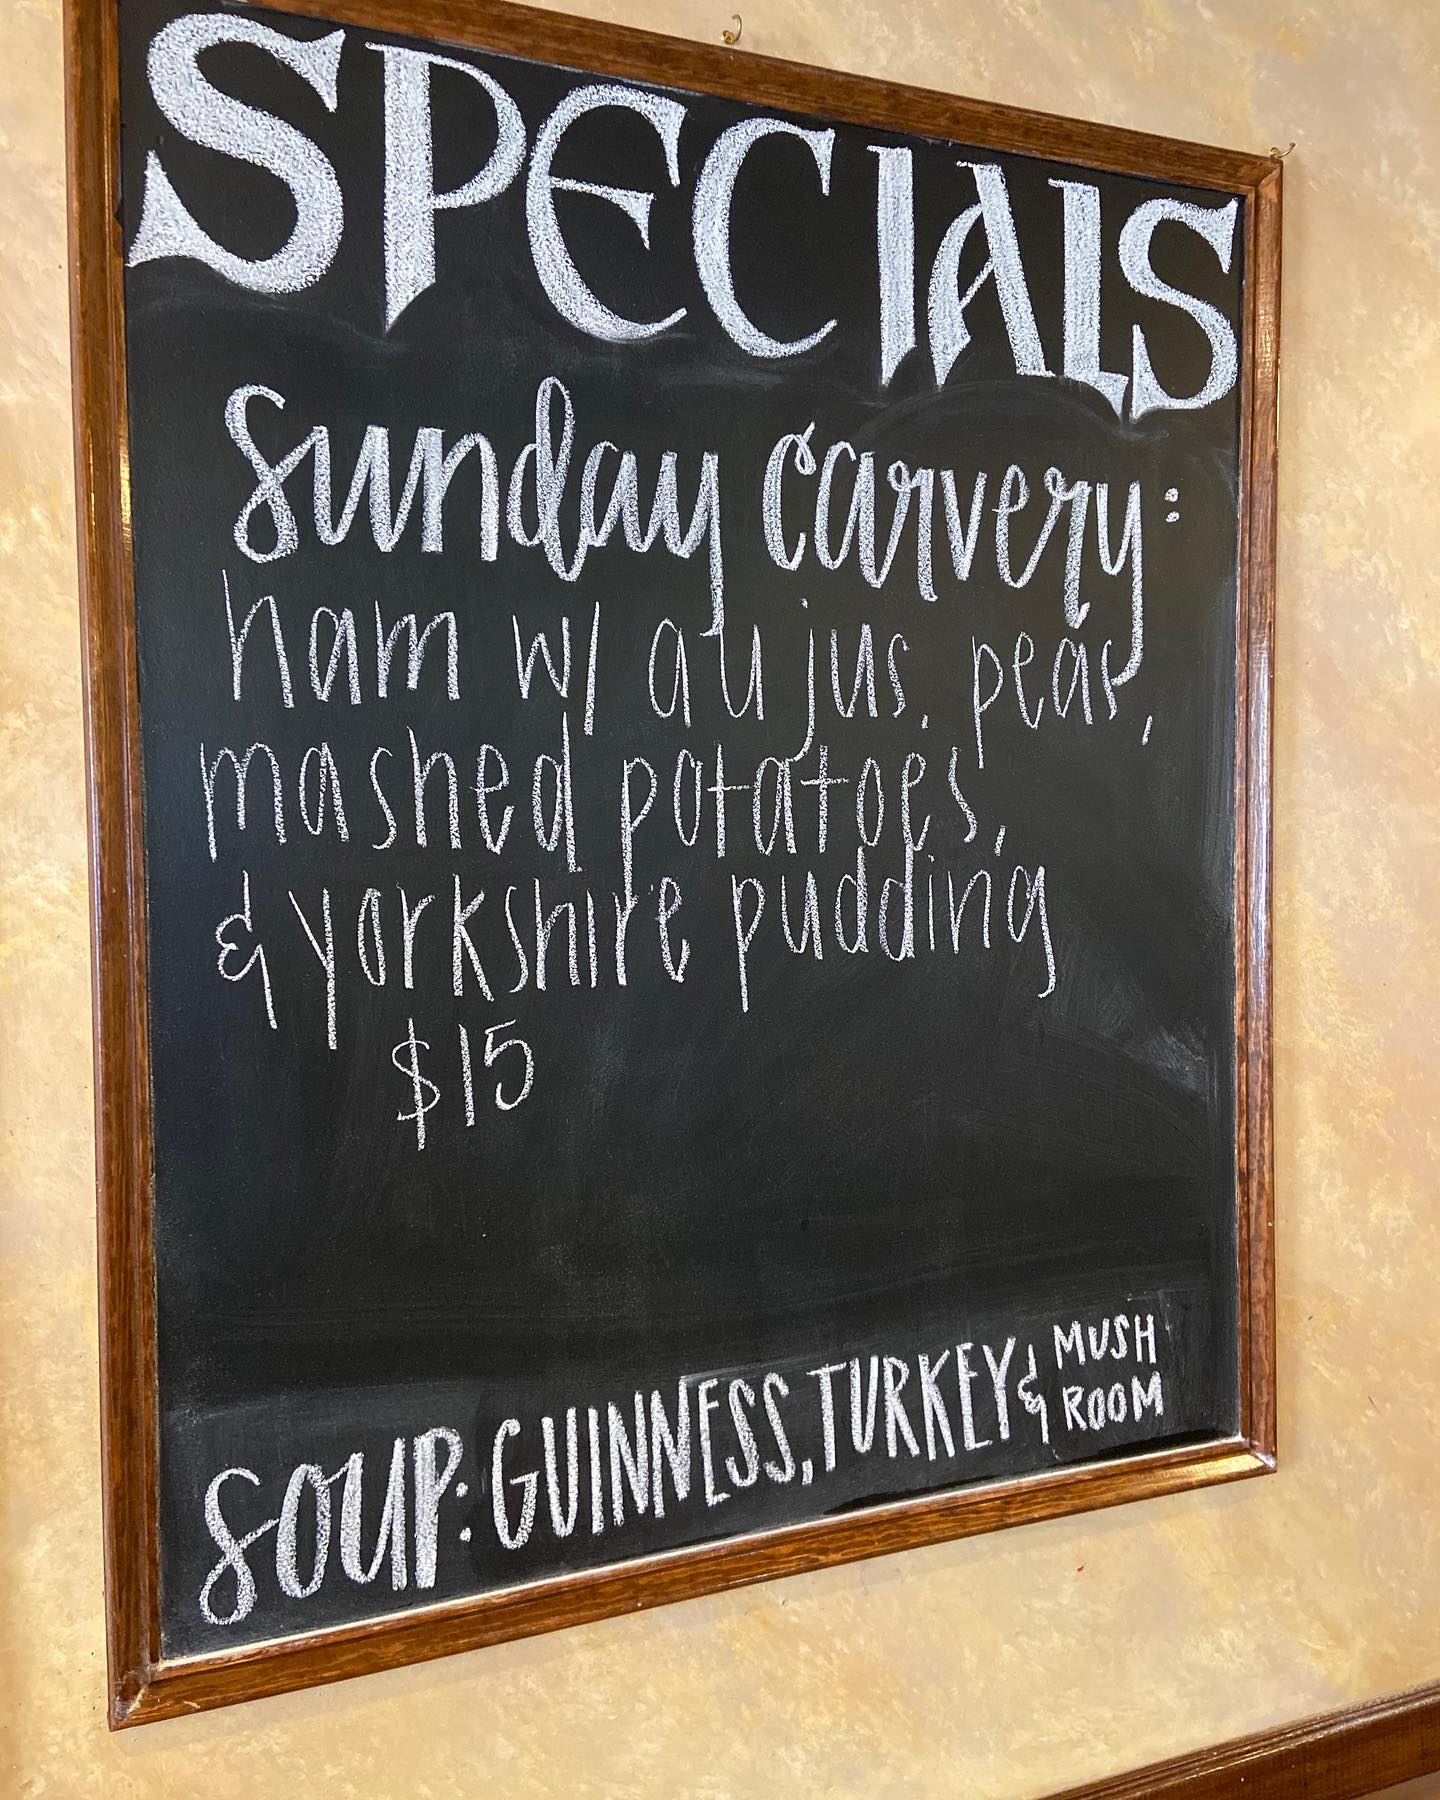 SPECIALS
sunday carvery:
ham w/ au jus, peas,
mashed potatoes,
& yorkshire pudding
$15
SOUP: GUINNESS, TURKEY & MUSH
ROOM